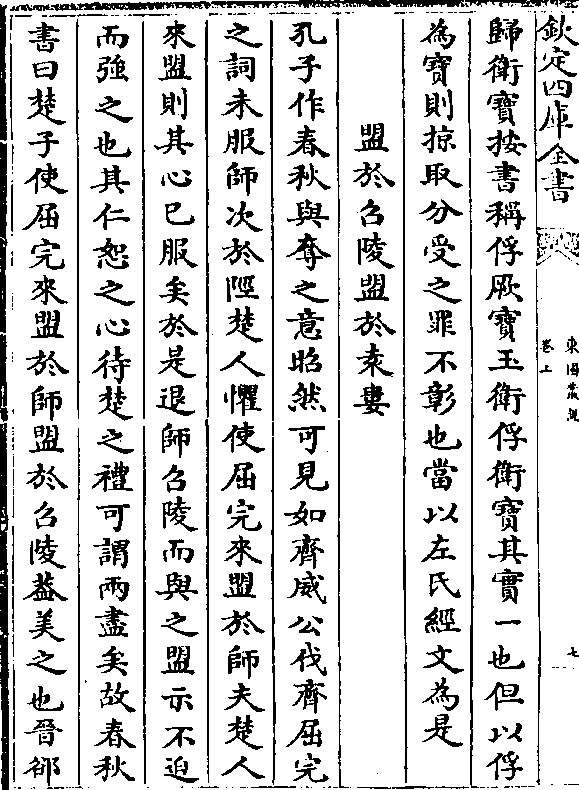 欽定四庫全書
東園叢說
卷上
七
歸衛寶按書稱俘厥寶玉衛俘衛寶其實一也但以俘
為寶則掠取分受之罪不彰也當以左氏經文為是
盟於召陵盟於袁婁
孔子作春秋與奪之意昭然可見如齊威公伐齊屈完
之詞未服師次於陘楚人懼使屈完來盟於師夫楚人
來盟則其心已服矣於是退師召陵而與之盟示不迫
而強之也其仁恕之心待楚之禮可謂兩盡矣故春秋
書曰楚子使屈完來盟於師盟於召陵葢美之也晉郤